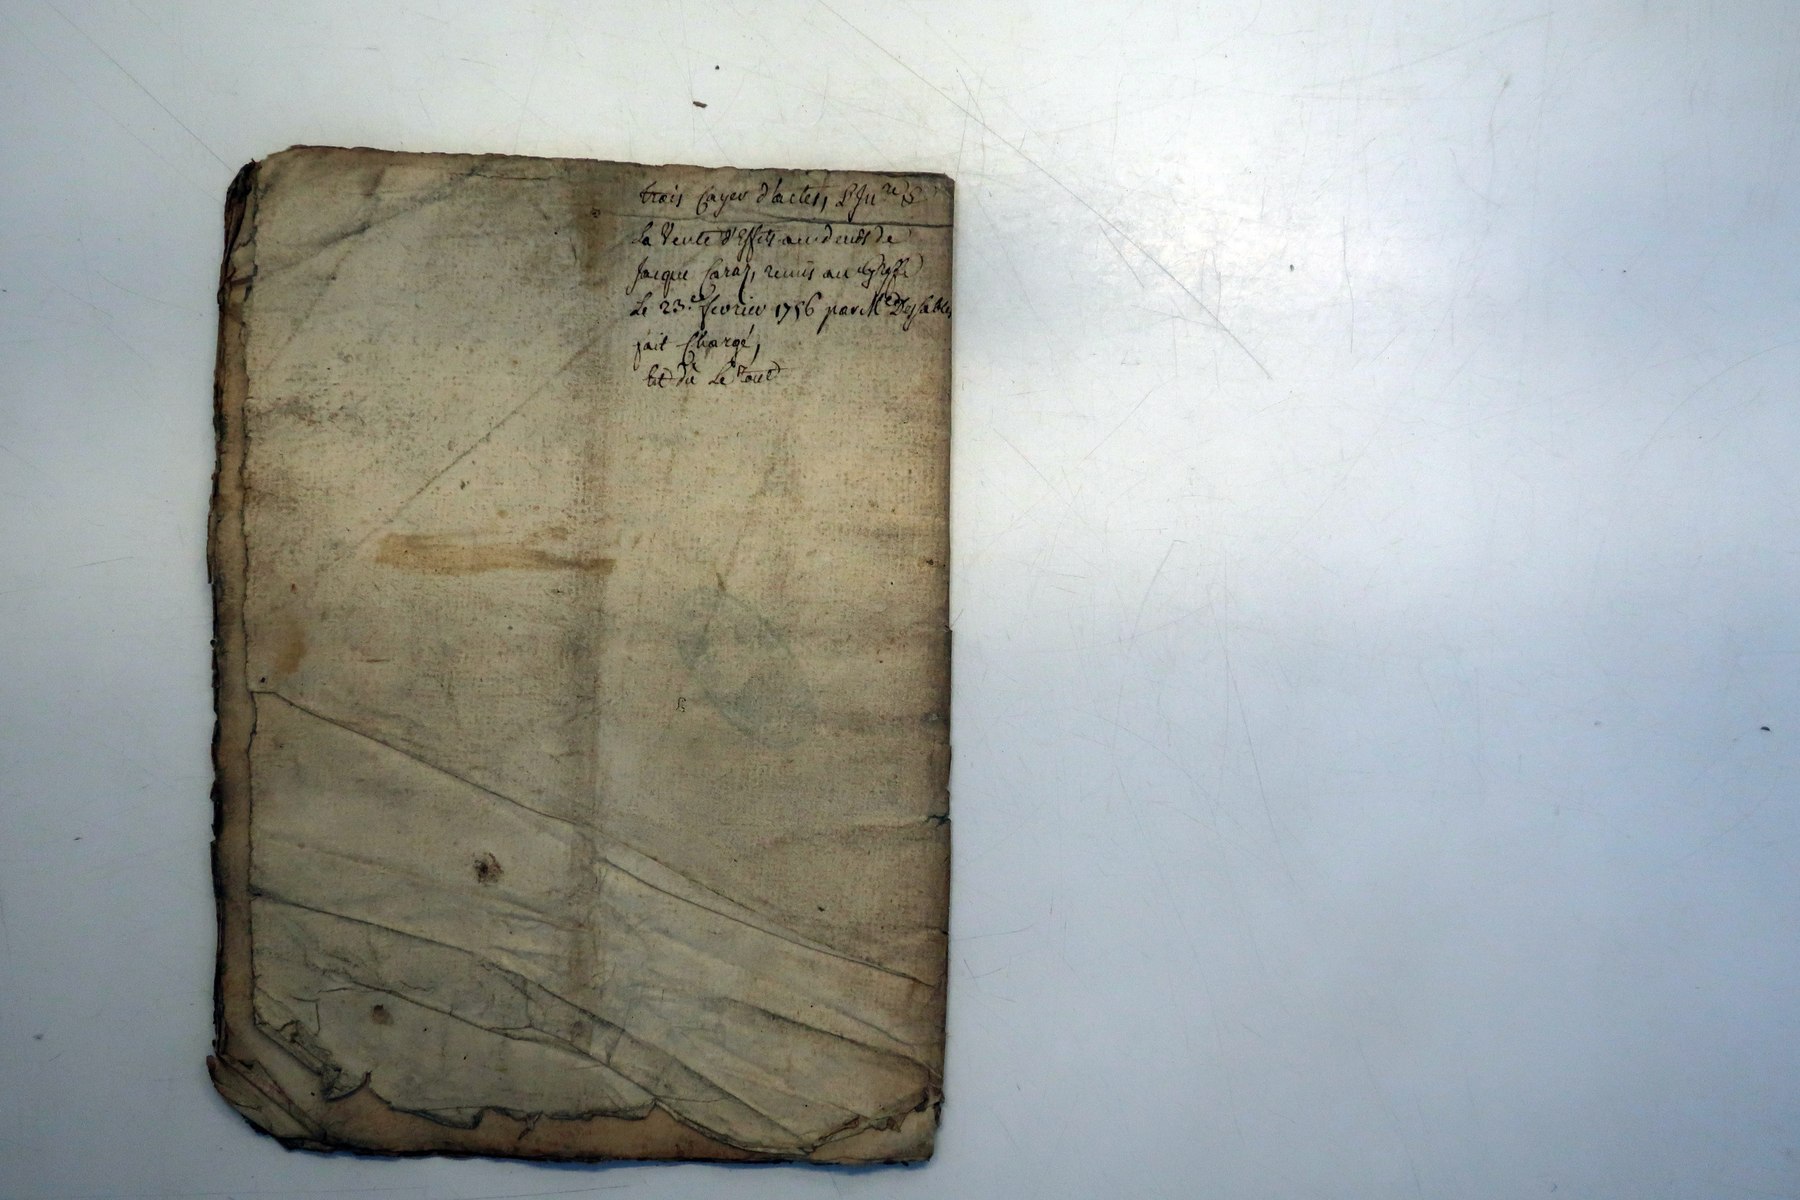 trois Cayer d'actes, L'Inre &
La Vente d'Effets au deceds de
Jacque Caraj, remis au Greffe
Le 23e fevrier 1756 par Me Dessables
fait Chargé,